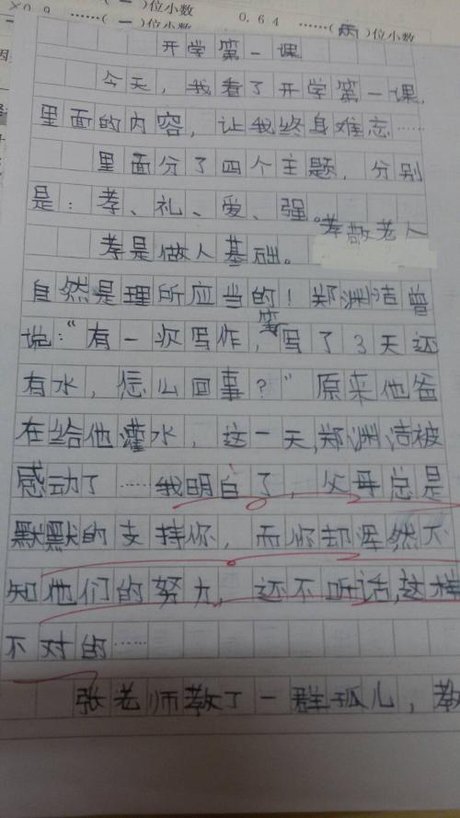 ……( 一 )位小数
0.64 ……( 两 )位小数
开学第一课
今天,我看了开学第一课,
里面的内容,让我终身难忘……
里面分了四个主题,分别
是:孝、礼、爱、强。
孝是做人基础。孝敬老人
自然是理所应当的!郑渊洁曾
说:“有一次写作,笔写了3天还
有水,怎么回事?”原来他爸
在给他灌水,这一天,郑渊洁被
感动了……我明白了,父母总是
默默的支持你,而你却浑然不
知他们的努力,还不听话,这样
不对的……
张老师教了一群孤儿,教